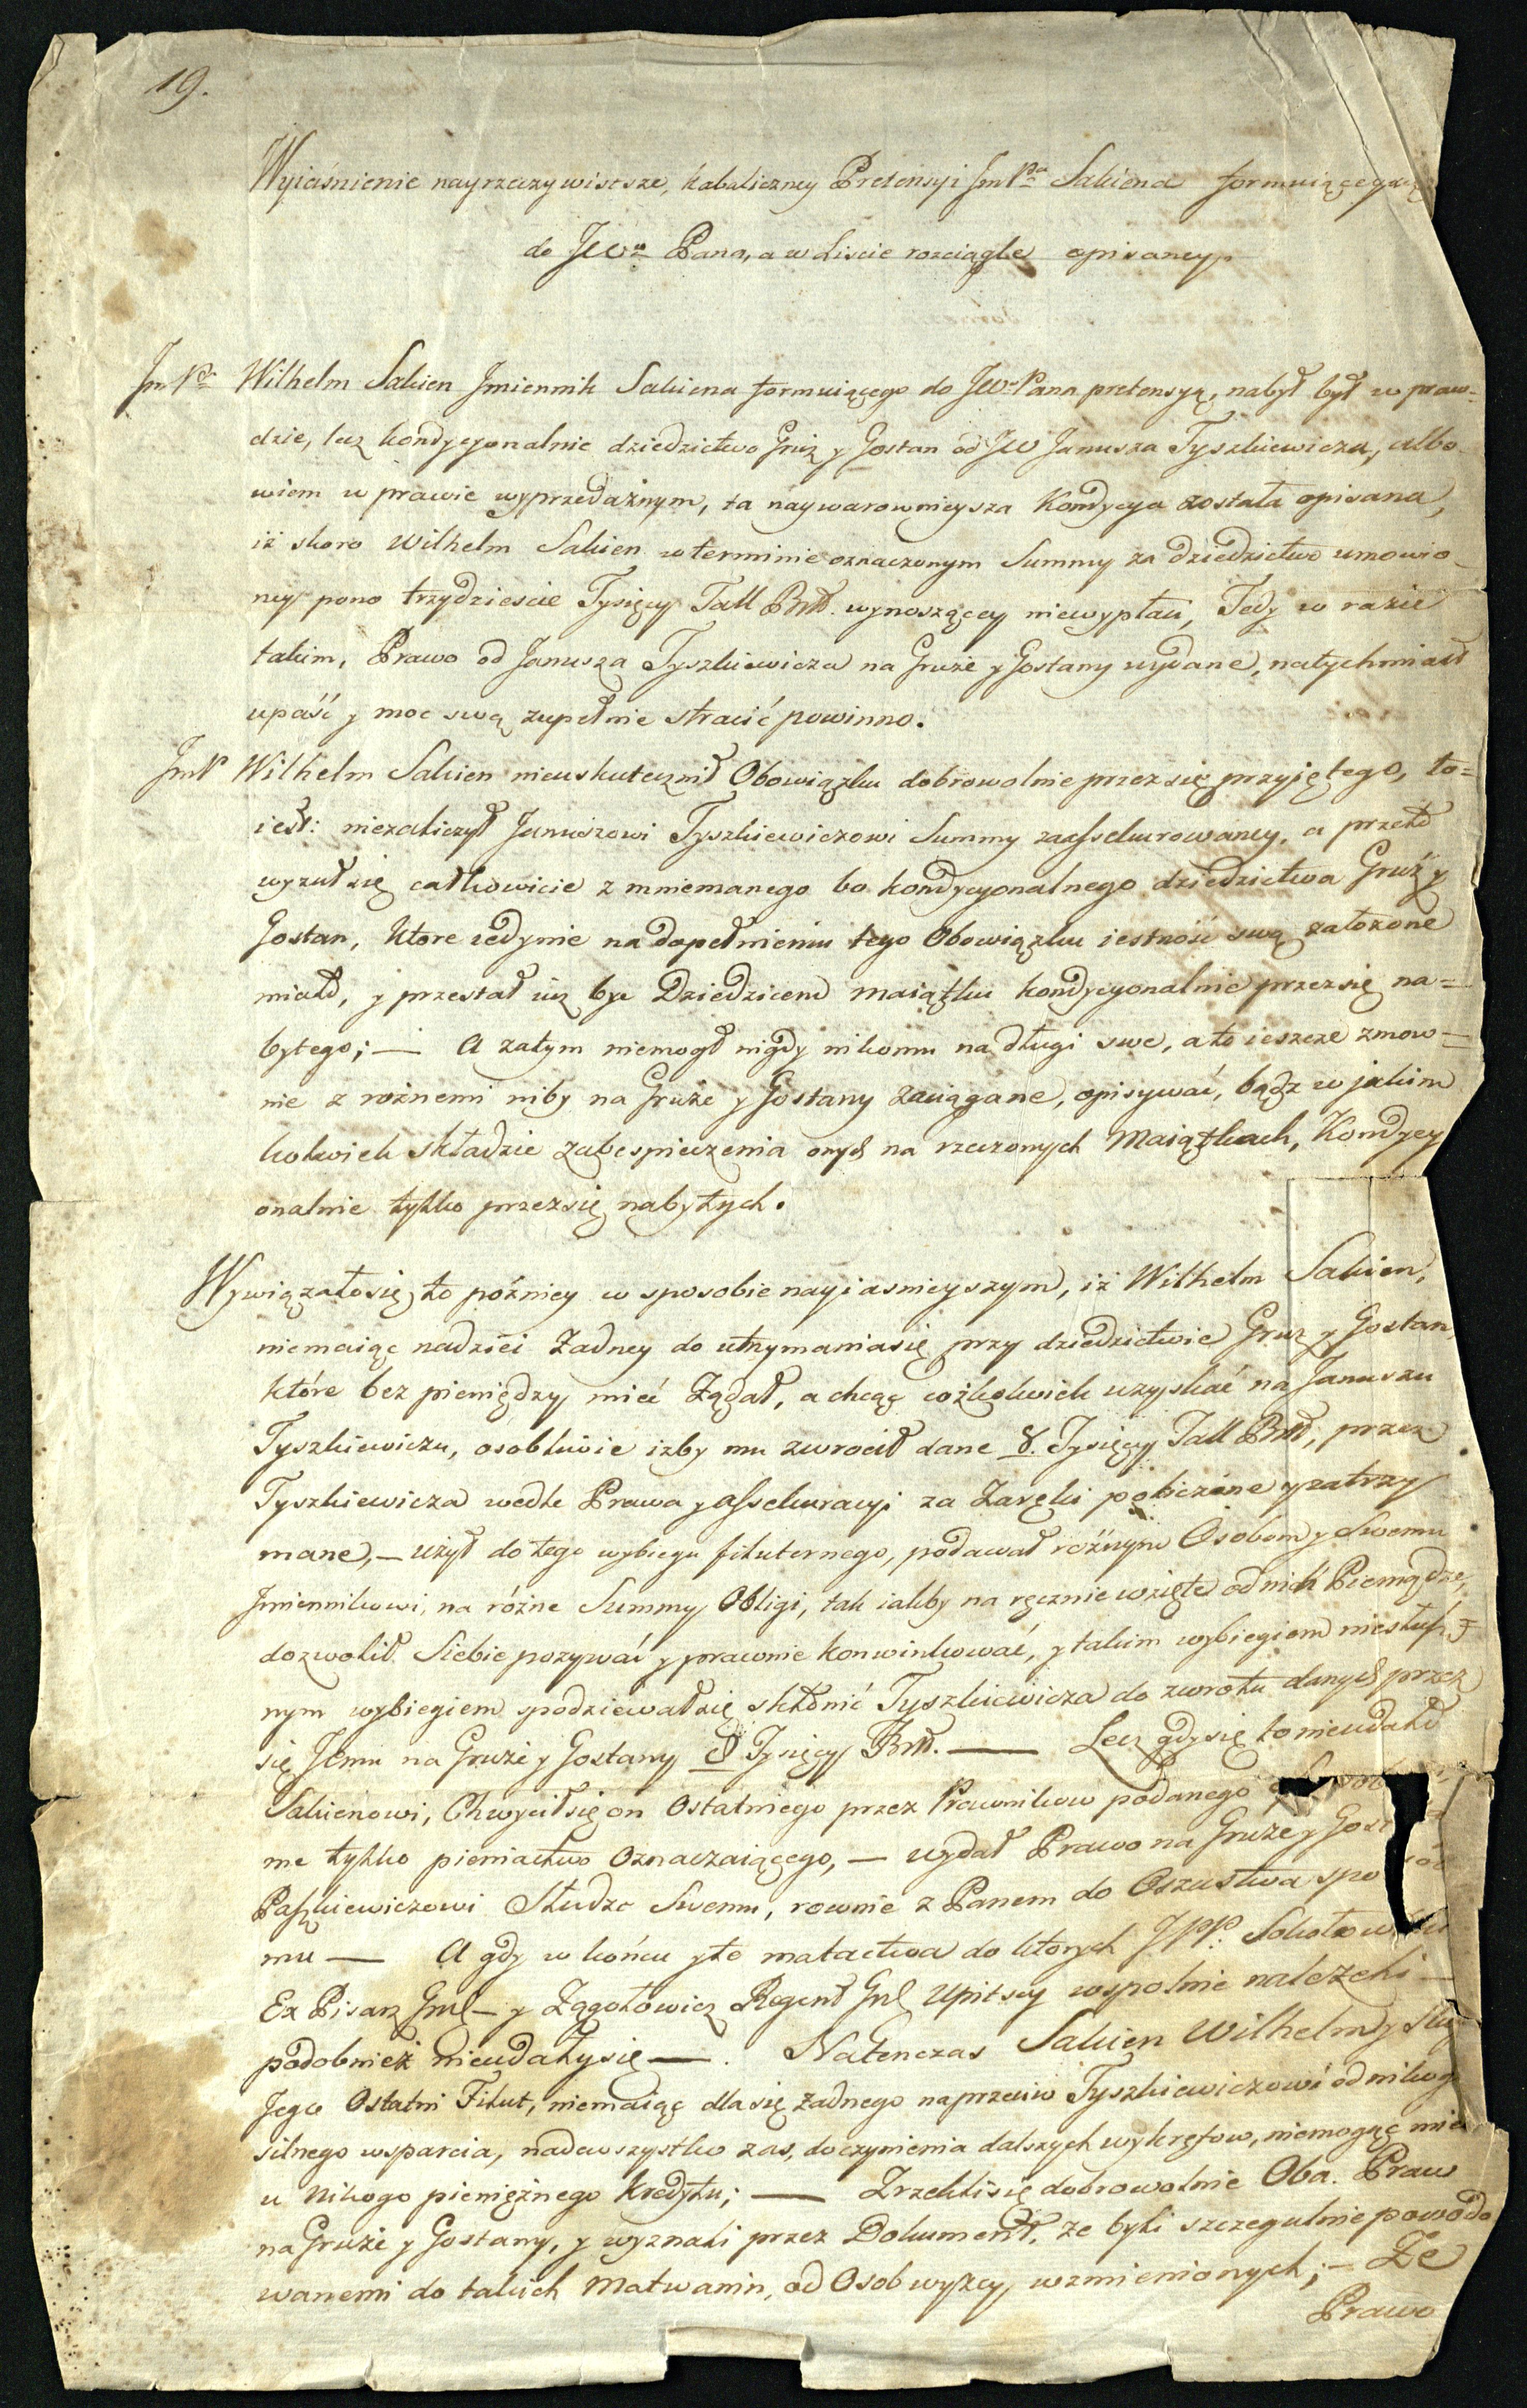 19.
Wyiaśnienie nayrzeczywistsze, kabaliczney Pretensyi JmPa Sakiena formuiącego
do JWo Pana, a w Liście rozciągle opisaney.
JmPn Wilhelm Sakien Jmiennik Sakiena formuiącego do JWo Pana pretensyą, nabył był w praw=
dzie, lecz kondycyonalnie dziedzictwo Gruż y Gostan od JW Janusza Tyszkiewicza, albo
wiem w prawie wyprzedażnym, ta naywarownieysza Kondycya została opisana,
iż skoro Wilhelm Sakien w terminie oznaczonym Summy za dziedzictwo umowio
ney pono trzydzieście Tysięcy Tall Bitt. wynoszącey niewypłaci, Tedy w razie
takim, Prawo od Janusza Tyszkiewicza na Gruże y Gostany wydane, natychmiast
upaść y moc swą zupełnie stracić powinno.
JmP Wilhelm Sakien nieuskutecznił Obowiązku dobrowolnie przez się przyjętego, to=
iest: niezaliczył Januszowi Tyszkiewiczowi Summy zaassekurowaney, a przeto
wyzuł się całkowicie z mniemanego bo kondycyonalnego dziedzictwa Gruż y
Gostan, Ktore iedynie na dopełnieniu tego Obowiązku iestność swą założone
miało, y przestał iuż bydź Dziedzicem maiątku kondycyonalnie przez się na=
bytego; — A zatym niemogł nigdy nikomu na długi swe, a to ieszcze zmow=
nie z rożnemi niby na Gruże y Gostany zaciągane, opisywać, bądź w jakim
kolwiek składzie zabespieczenia onych na rzeczonych Maiątkach, Kondycy
onalnie tylko przez się nabytych.
Wywiązało się to pózniey w sposobie nayiasnieyszym, iż Wilhelm Sakien,
niemaiąc nadziei Żadney do utrzymania się przy dziedzictwie Gruż y Gostan,
które bez pieniędzy mieć Żądał, a chcąc cożkolwiek uzyskać na Januszu
Tyszkiewiczu, osobliwie iżby mu zwrocił dane 8. Tysięcy Tall Bitt, przez
Tyszkiewicza wedle Prawa y assekuracyi za Zaręki policzone y zatrzy
mane, — użył do tego wybiegu filuternego, podawał róznym Osobom y Swemu
Jmiennikowi, na różne Summy Obligi, tak iakby na ręcznie wzięte od nich Pieniądze,
dozwolił Siebie pozywać y prawnie konwinkować, y takim wybiegiem niesłusz=
nym wybiegiem spodziewał się skłonić Tyszkiewicza do zwrotu danych przez
się Jemu na Gruże y Gostany 8 Tysięcy Bitt. — Lecz gdy się to nieudało
Sakienowi, Chwycił się on Ostatniego przez Prawnikow podanego
me tylko pieniactwo Oznaczaiącego, — wydał Prawo na Gruże y
Paszkiewiczowi Słudze Swemu, rownie z Panem do Oszustwa
mu — A gdy w końcu y te matactwa do ktorych JPP.
Ex Pisarz Gml — y Zągołowicz Regent Gnl Upitscy wspolnie należeli —
podobnież nieudały się —. Natenczas Sakien Wilhelm y
Jego Ostatni Filut, niemaiąc dla się żadnego naprzeciw Tyszkiewiczowi od nikogo
silnego wsparcia, nadewszystko zas, do czynienia dalszych wykrętow, niemogąc mieć
u Nikogo pieniężnego Kredytu; — Zrzekli się dobrowolnie Oba. Praw
na Gruże y Gostany, y wyznali przez Dokument, że byli szczegulnie powodo
wanemi do takich Matwanin, od Osob wyżey wzmienionych; — Ze
Prawo